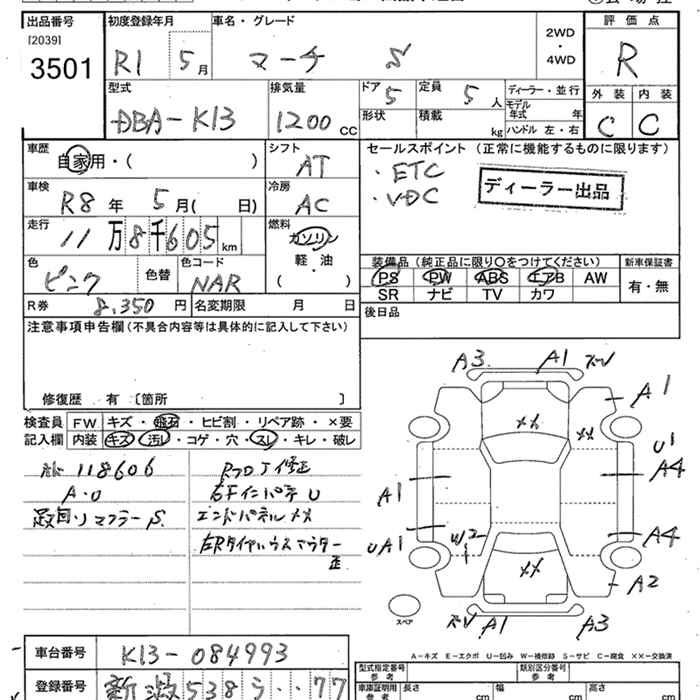 出品番号 初度登録年月 車名・グレード 評価点
[2039]
3501 R1 5月 マーチ S 2WD・4WD R
型式 排気量 ドア 5 定員 5人 ディーラー・並行 外装 内装
DBA-K13 1200 CC 形状 積載 kg モデル年式 年 C C
ハンドル 左・右
車歴 自家用・( ) シフト AT セールスポイント (正常に機能するものに限ります)
・ETC
・VDC
ディーラー出品
車検 R8年 5月( 日) 冷房 AC
走行 11万8千605km 燃料 ガソリン 軽・油 ( )
色 ピンク 色替 色コード NAR
装備品(純正品に限り○をつけてください) 新車保証書
PS PW ABS エアB AW 有・無
SR ナビ TV カワ
R券 8,350円 名変期限 月 日 後日品
注意事項申告欄(不具合内容等は具体的に記入して下さい)
修復歴 有 〔箇所 〕
検査員 FW キズ・飛石・ヒビ割・リペア跡・×要
記入欄 内装 キズ・汚レ・コゲ・穴・スレ・キレ・破レ
118606
A・U
マフラーS.
右Fインパネ U
エンドパネル メメ
A3 A1 A1
××
××
U1
A4
A1
A4
UA1 W2
××
A2
スペア A1 A3
A-キズ E-エクボ U-凹み W-補修跡 S-サビ C-腐食 ××-交換済
車台番号 K13-084993
型式指定番号 参考 類別区分番号 参考
登録番号 新潟538 う ・・77
車庫証明用 参考 長さ cm 幅 cm 高さ cm